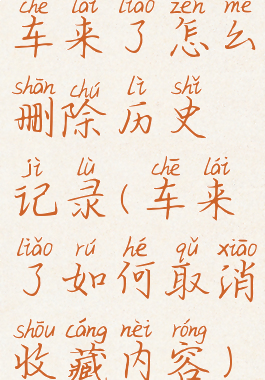 chē lái liǎo zěn me
车来了怎么
shān chú lì shǐ
删除历史
jì lù chē lái
记录(车来
liǎo rú hé qǔ xiāo
了如何取消
shōu cáng nèi róng
收藏内容)